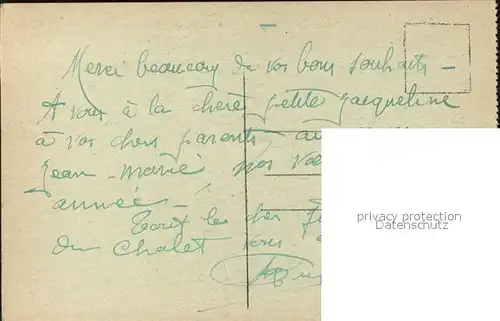 Merci beaucoup de vos bons souhaits -
A vous, à la chère petite Jacqueline
à vos chers parents, au
Jean-Marie nos
année -
Tout le cher
du Chalet vous
privacy protection
Datenschutz